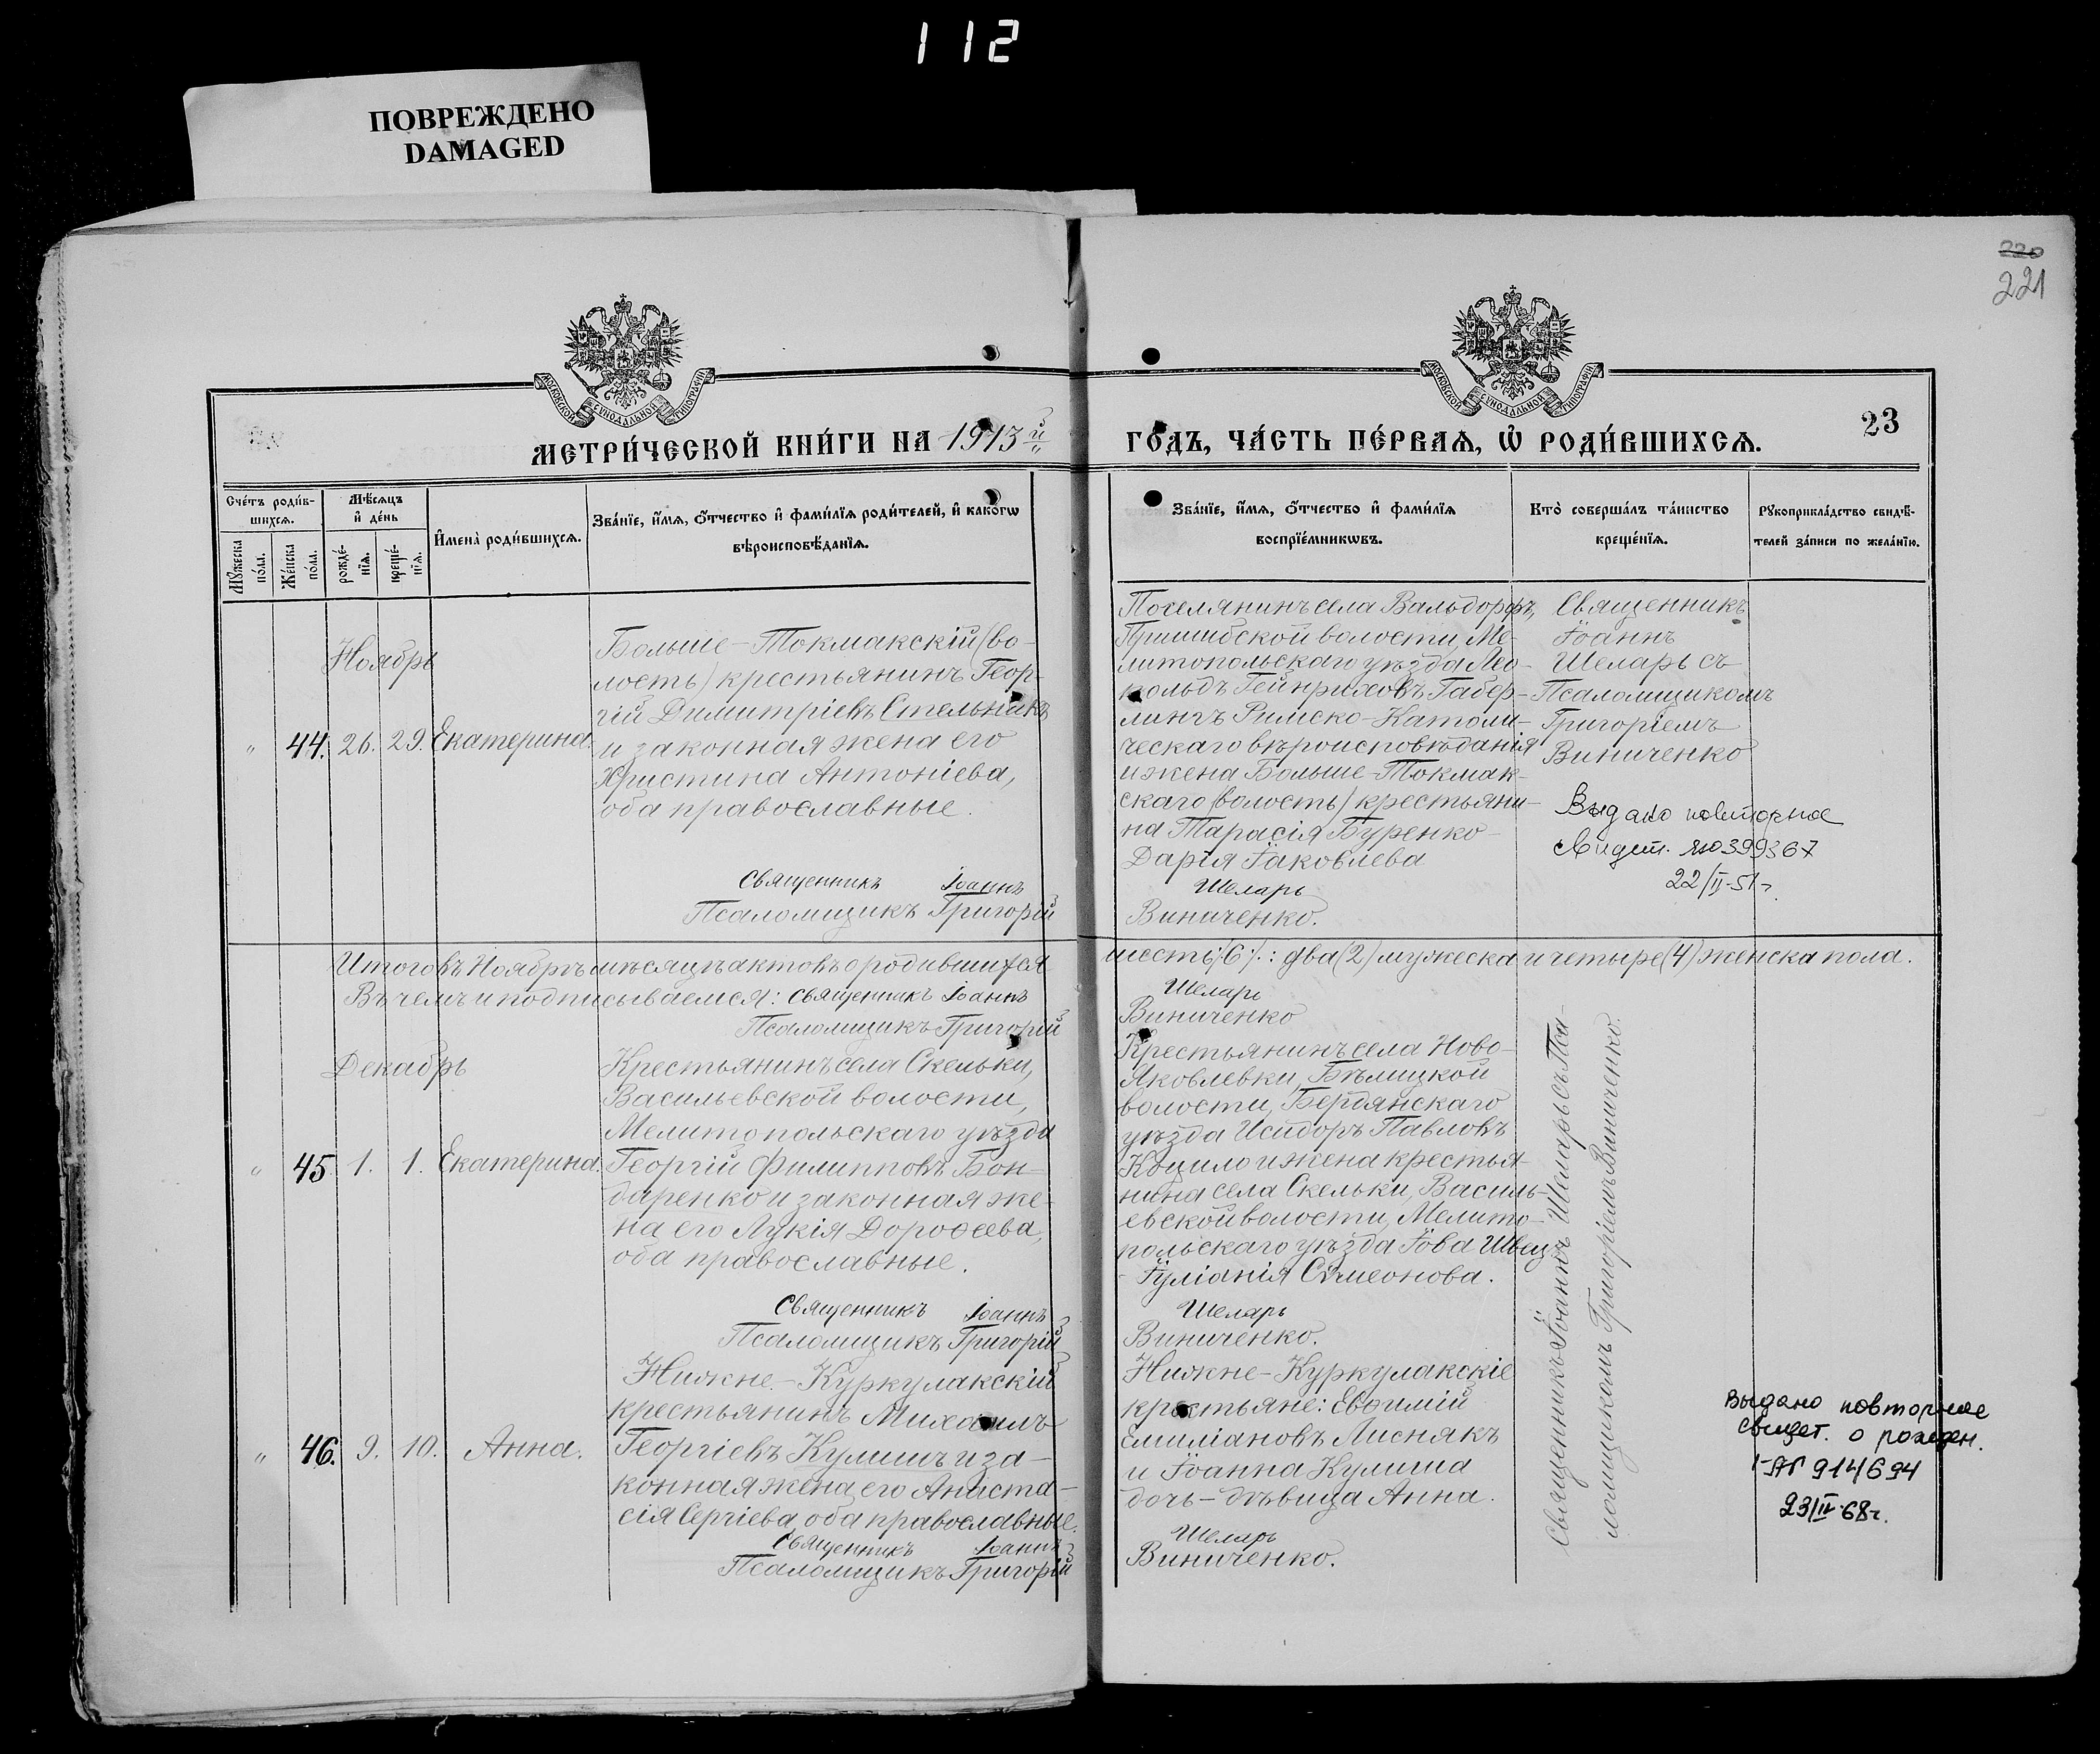 112
ПОВРЕЖДЕНО
DAMAGED
220
221
МОСКОВСКОЙ СУНОДАЛЬНОЙ ТИПОГРАФІИ
МОСКОВСКОЙ СУНОДАЛЬНОЙ ТИПОГРАФІИ
23
МЕТРИ́ЧЕСКОЙ КНИ́ГИ НА 1913й
ГО́ДЪ, ЧА́СТЬ ПЕ́РВАѦ, Ѡ҆ РОДИ́ВШИХСѦ.
Сче́тъ роди́в-
шихсѧ.
Мꙋ́жеска по́ла.
Же́нска по́ла.
Мѣ́сѧцъ
и҆ де́нь
рожде́-
нїѧ.
креще́-
нїѧ.
И҆мена̀ роди́вшихсѧ.
Зва́нїе, и҆́мѧ, ѻ҆́тчество и҆ фами́лїѧ роди́телей, и҆ како́гѡ
вѣроисповѣ́данїѧ.
Зва́нїе, и҆́мѧ, ѻ҆́тчество и҆ фами́лїѧ
воспрїе́мникѡвъ.
Кто̀ соверша́лъ та́инство
креще́нїѧ.
Рꙋкоприкла́дство свидѣ́-
телей за́писи по жела́нїю.
Ноябрь
" 44. 26. 29. Екатерина.
Больше-Токмакскій (во-
лость) крестьянинъ Геор-
гій Димитріевъ Стельникъ
и законная жена его
Христина Антоніева,
оба православные.
Священникъ Іоаннъ
Псаломщикъ Григорій
Поселянинъ села Вальдорфъ,
Пришибской волости, Ме-
литопольскаго уѣзда Лео-
польдъ Гейнриховъ Габер-
лингъ Римско-Католи-
ческаго вѣроисповѣданія
и жена Больше-Токмак-
скаго (волость) крестьяни-
на Тарасія Буренко
Дарія Іаковлева
Шеларь
Виниченко.
Священникъ
Іоаннъ
Шеларь съ
Псаломщикомъ
Григоріемъ
Виниченко
Выдано повторное
Свидет. ЯЮ 399367
22/II-51 г.
Итого въ Ноябрѣ мѣсяцѣ актовъ о родившихся
шесть (6): два (2) мужеска и четыре (4) женска пола.
Въ чемъ и подписываемся: Священникъ Іоаннъ
Шеларь
Псаломщикъ Григорій
Виниченко
Декабрь
" 45 1. 1. Екатерина.
Крестьянинъ села Скельки,
Васильевской волости,
Мелитопольскаго уѣзда
Георгій Филипповъ Бон-
даренко и законная же-
на его Лукія Дороѳеева,
оба православные.
Священникъ Іоаннъ
Псаломщикъ Григорій
Крестьянинъ села Ново-
Яковлевки, Бѣлицкой
волости, Бердянскаго
уѣзда Исидоръ Павловъ
Коцило и жена крестья-
нина села Скельки, Василь-
евской волости, Мелито-
польскаго уѣзда Іова Швец
- Іуліанія Сѵмеонова.
Шеларь
Виниченко.
Священникъ Іоаннъ Шеларь съ Пса-
ломщикомъ Григоріемъ Виниченко.
" 46. 9. 10. Анна.
Нижне-Куркулакскій
крестьянинъ Михаилъ
Георгіевъ Кулишъ и за-
конная жена его Анаста-
сія Сергіева, оба православные.
Священникъ Іоаннъ
Псаломщикъ Григорій
Нижне-Куркулакскіе
крестьяне: Евѳимій
Емиліановъ Лиснякъ
и Іоанна Кулиша
дочь-дѣвица Анна.
Шеларь
Виниченко.
Выдано повторное
свидет. о рожден.
I-АП 914694
23/IV-68г.